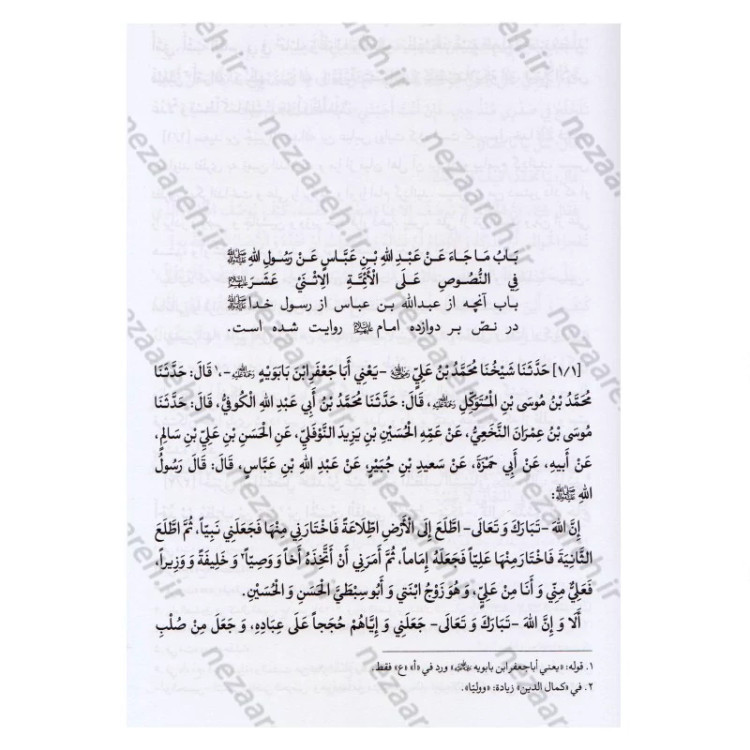 بَابُ مَا جَاءَ عَنْ عَبْدِ اللهِ بْنِ عَبَّاسٍ عَنْ رَسُولِ اللهِ ﷺ
فِي النُّصُوصِ عَلَى الْأَئِمَّةِ الِاثْنَيْ عَشَرَ
باب آنچه از عبدالله بن عباس از رسول خدا ﷺ
در نصّ بر دوازده امام روایت شده است.
[۱/۱] حَدَّثَنَا شَيْخُنَا مُحَمَّدُ بْنُ عَلِيٍّ -يَعْنِي أَبَا جَعْفَرِ ابْنَ بَابَوَيْهِ-۱، قَالَ: حَدَّثَنَا
مُحَمَّدُ بْنُ مُوسَى بْنِ الْمُتَوَكِّلِ، قَالَ: حَدَّثَنَا مُحَمَّدُ بْنُ أَبِي عَبْدِ اللهِ الْكُوفِيُّ، قَالَ: حَدَّثَنَا
مُوسَى بْنُ عِمْرَانَ النَّخَعِيُّ، عَنْ عَمِّهِ الْحُسَيْنِ بْنِ يَزِيدَ النَّوْفَلِيِّ، عَنِ الْحَسَنِ بْنِ عَلِيِّ بْنِ سَالِمٍ،
عَنْ أَبِيهِ، عَنْ أَبِي حَمْزَةَ، عَنْ سَعِيدِ بْنِ جُبَيْرٍ، عَنْ عَبْدِ اللهِ بْنِ عَبَّاسٍ، قَالَ: قَالَ رَسُولُ
اللهِ ﷺ:
إِنَّ اللهَ -تَبَارَكَ وَ تَعَالَى- اطَّلَعَ إِلَى الْأَرْضِ اطِّلَاعَةً فَاخْتَارَنِي مِنْهَا فَجَعَلَنِي نَبِيّاً، ثُمَّ اطَّلَعَ
الثَّانِيَةَ فَاخْتَارَ مِنْهَا عَلِيّاً فَجَعَلَهُ إِمَاماً، ثُمَّ أَمَرَنِي أَنْ أَتَّخِذَهُ أَخاً وَ وَصِيّاً۲ وَ خَلِيفَةً وَ وَزِيراً،
فَعَلِيٌّ مِنِّي وَ أَنَا مِنْ عَلِيٍّ، وَ هُوَ زَوْجُ ابْنَتِي وَ أَبُو سِبْطَيَّ الْحَسَنِ وَ الْحُسَيْنِ.
أَلَا وَ إِنَّ اللهَ -تَبَارَكَ وَ تَعَالَى- جَعَلَنِي وَ إِيَّاهُمْ حُجَجاً عَلَى عِبَادِهِ، وَ جَعَلَ مِنْ صُلْبِ
۱. قوله: «يعني أباجعفر ابن بابويه» ورد في «أ» «ع» فقط.
۲. في «كمال الدين» زيادة: «ووليّا».
nezaareh.ir
nezaareh.ir
nezaareh.ir
nezaareh.ir
nezaareh.ir
nezaareh.ir
nezaareh.ir
nezaareh.ir
nezaareh.ir